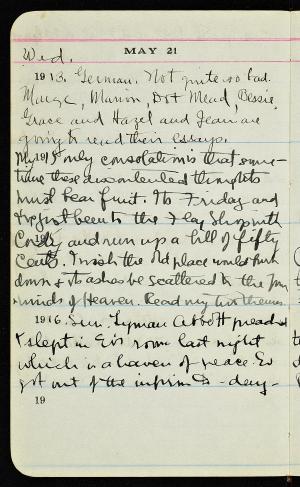 MAY 21
Wed.
1913. German. Not quite so bad.
Marge, Marion, Dot Mead, Bessie,
Grace and Hazel and Jean are
going to read their essays.
My 1915 only consolation is that some-
time these discontented thoughts
must bear fruit. Its Friday and
I've just been to the Flag Shop with
and run up a bill of fifty
cents. I wish the old place would burn
down & its ashes be scattered to the four
winds of Heaven. Read my two themes
1916. Sun. Lyman Abbott preached
I slept in E's room last night
which is a haven of peace. Ev
got out of the infirm to-day-
19